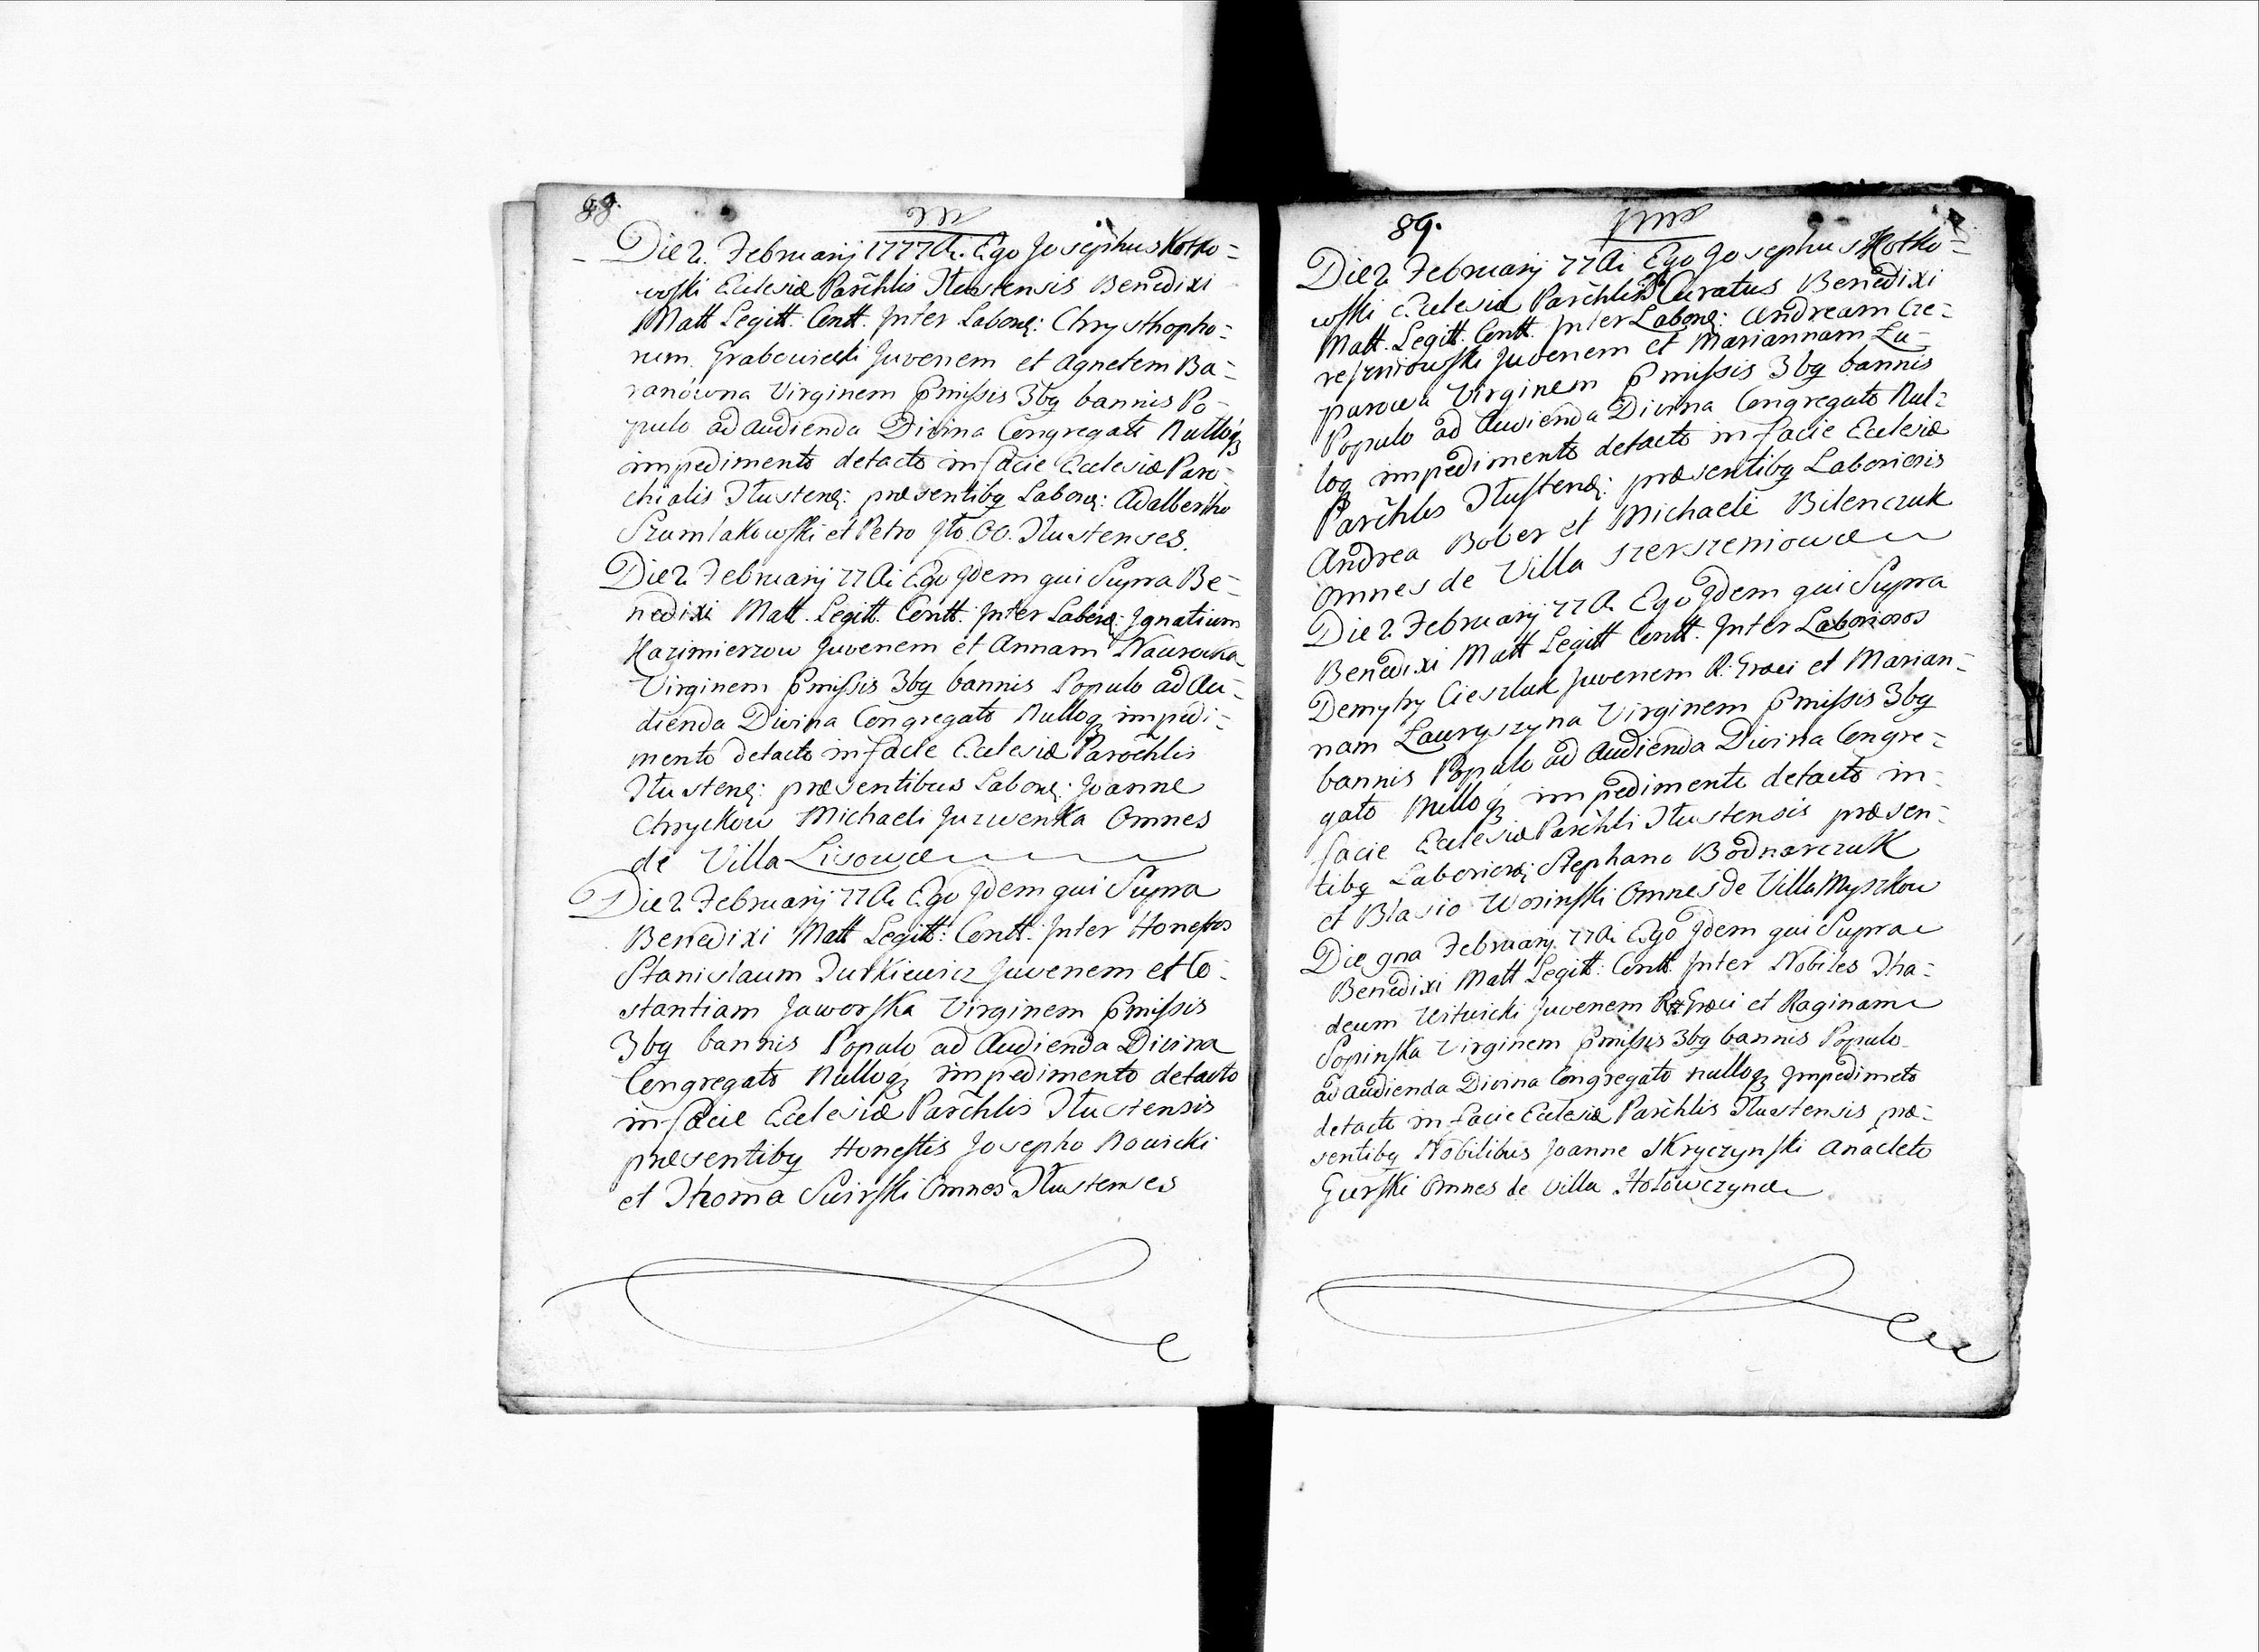 88.
Die 2. Februarij 1777 Ai. Ego Josephus Kotko=
wski Eclesiæ Parchlis Tłustensis Benedixi
Matt Legitt: Contt. Jnter Labores: Chrysthopho=
rum Grabowiecki Juvenem et Agnetem Ba=
ranówna Virginem Pmissis 3bq bannis Po=
pulo ad Audienda Divina Congregato Nulloqz
impedimento detacto in facie Eclesiæ Paro=
chialis Tłustens: præsentibq Labores: Adalbertho
Szumlakowski et Petro Jto. OO. Tłustenses.
Die 2. Februarij 77 Ai Ego Jdem qui Supra Be=
nedixi Matt. Legitt. Contt. Jnter Labores: Jgnatium
Kazimierzow Juvenem et Annam Nawrocka
Virginem Pmissis 3bq bannis Populo ad Au=
dienda Divina Congregato Nulloqz impedi=
mento detacto in facie Eclesiæ Parochlis
Tłustens: præsentibus Labores: Joanne
Chryckow Michaeli Juzwenka Omnes
de Villa Lisowce
Die 2. Februarij 77 Ai Ego Jdem qui Supra
Benedixi Matt Legitt: Contt: Jnter Honestos
Stanislaum Turkiewicz Juvenem et Co=
stantiam Jaworska Virginem Pmissis
3bq bannis Populo ad Audienda Divina
Congregato Nulloqz impedimento detacto
in facie Eclesiæ Parchlis Tłustensis
præsentibq Honestis Josepho Nowicki
et Thoma Swirski Omnes Tłustenses
89.
Die 2 Februarij 77 Ai Ego Josephus Kotko=
wski Eclesiæ Parchlis Curatus Benedixi
Matt. Legitt. Contt. Jnter Labores: Andream Cze=
reszniowski Juvenem et Mariannam Łu=
parowa Virginem Pmissis 3bq bannis
Populo ad Audienda Divina Congregato Nul=
loq impedimento detacto in facie Eclesiæ
Parchlis Tłustens: præsentibq Laborioris
Andrea Bober et Michaele Bilenczuk
Omnes de Villa Szerszeniowce
Die 2. Februarij 77 A. Ego Jdem qui Supra
Benedixi Matt Legitt Contt. Jnter Laboriosos
Demytry Cieszluk Juvenem R. Græci et Marian=
nam Lauryszyna Virginem Pmissis 3bq
bannis Populo ad Audienda Divina Congre=
gato Nulloqz impedimento detacto in
facie Eclesiæ Parchli Tłustensis præsen=
tibq Laborioris: Stephano Bodnarczuk
et Blasio Wosinski Omnes de Villa Myszkow
Die 9na Februarij. 77 Ai Ego Jdem qui Supra
Benedixi Matt Legitt: Contt. Jnter Nobiles Tha=
deum Witwicki Juvenem Rt Græci et Raginam
Sopinska Virginem Pmissis 3bq bannis Populo
ad Audienda Divina Congregato nulloqz Jmpedimeto
detacto in facie Eclesiæ Parchlis Tłustensis præ=
sentibq Nobilibus Joanne Skryczynski Anacleto
Gurski Omnes de Villa Hołowczynce